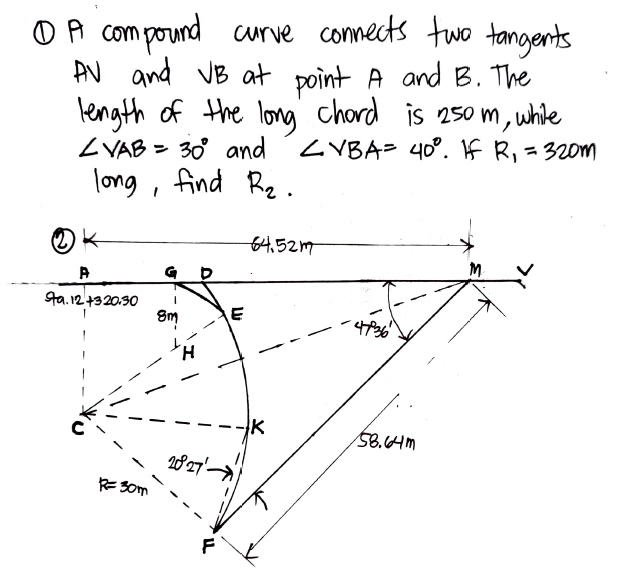 ① A compound curve connects two tangents
AV and VB at point A and B. The
length of the long chord is 250 m, while
∠VAB = 30° and ∠VBA = 40°. If R₁ = 320m
long, find R₂.
②
64.52m
A G D M V
Sta. 12 +320.30
8m
E
47°36'
H
C
K
58.64m
20°27'
R=30m
F